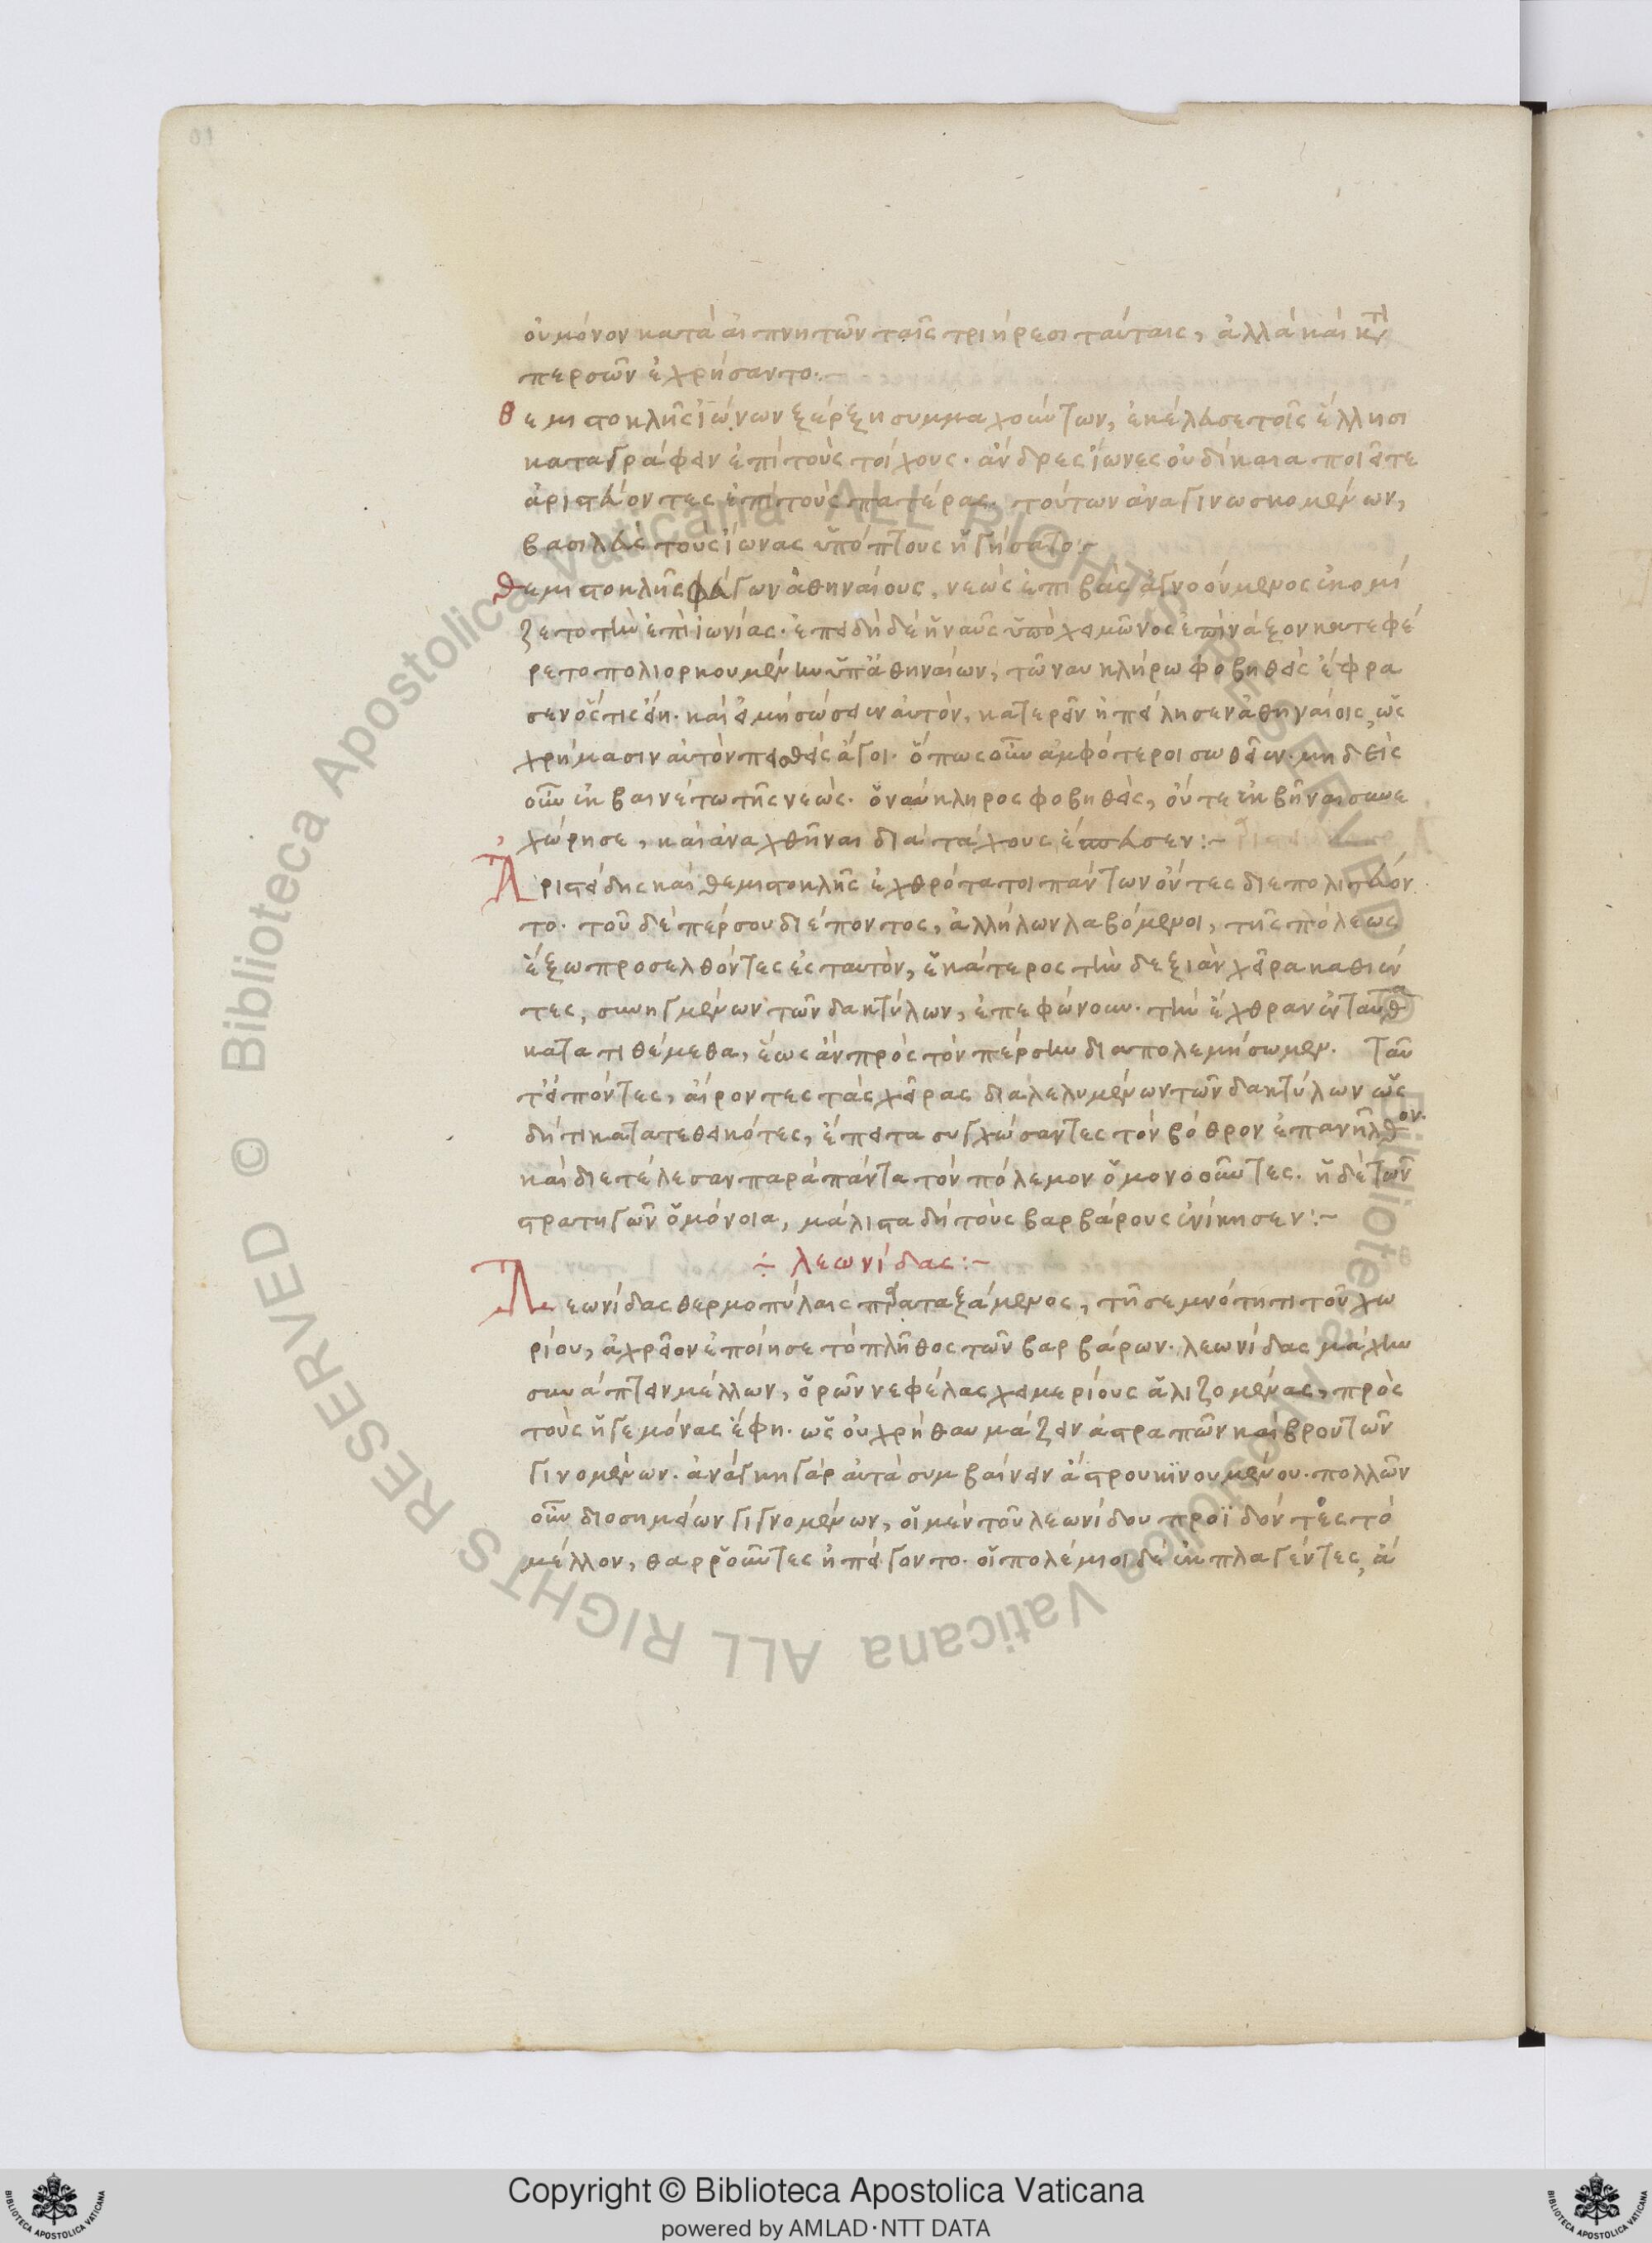 οὐ μόνον κατὰ αἰπνητῶν ταῖς τριήρεσι ταύταις, ἀλλὰ καὶ κτ
περσῶν ἐχρήσαντο.
Θεμιστοκλῆς ἰώνων ξέρξη συμμαχούντων, ἐκέλευσε τοῖς ἕλλησι
καταγράφειν ἐπὶ τοὺς τοίχους. ἄνδρες ἴωνες οὐ δίκαια ποιεῖτε
ἀριστεύοντες ἐπὶ τοὺς πατέρας. τούτων ἀναγινωσκομένων,
βασιλεὺς τοὺς ἴωνας ὑπόπτους ἡγήσατο:-
Θεμιστοκλῆς φεύγων ἀθηναίους, νεὼς ἐπιβὰς ἀγνοούμενος ἐκομί
ζετο τὴν ἐπὶ ἰωνίας. ἐπειδὴ δὲ ἡ ναῦς ὑπὸ χειμῶνος ἐπὶ νάξον κατεφέ
ρετο πολιορκουμένην ὑπ' ἀθηναίων, τῶ ναυκλήρω φοβηθεὶς ἔφρα
σεν ὅστις εἴη. καὶ εἰ μὴ σώσειεν αὐτὸν, κατερεῖν ἠπείλησεν ἀθηναίοις, ὡς
χρήμασιν αὐτὸν πεισθεὶς ἄγοι. ὅπως οὖν ἀμφότεροι σωθεῖεν. μηδεὶς
οὖν ἐκβαινέτω τῆς νεώς. ὁ ναύκληρος φοβηθεὶς, οὔτε ἐκβῆναι συνε
χώρησε, καὶ ἀναχθῆναι διὰ τάχους ἔπευσεν:-
Ἀριστείδης καὶ θεμιστοκλῆς ἐχθρότατοι πάντων ὄντες διεπολιτεύον
το. τοῦ δὲ πέρσου διέποντος, ἀλλήλων λαβόμενοι, τῆς πόλεως
ἔξω προσελθόντες ἐς ταυτὸν, ἑκάτερος τὴν δεξιὰν χεῖρα καθιέν
τες, συνηγμένων τῶν δακτύλων, ἐπεφώνουν. τὴν ἔχθραν ἐνταῦθα
κατατιθέμεθα, ἕως ἂν πρὸς τὸν πέρσην διαπολεμήσωμεν. ταῦ
τ' εἰπόντες, αἴροντες τὰς χεῖρας διαλελυμένων τῶν δακτύλων ὡς
δή τι κατατεθεικότες, ἔπειτα συγχώσαντες τὸν βόθρον ἐπανῆλθον.
καὶ διετέλεσαν παρὰ πάντα τὸν πόλεμον ὁμονοοῦντες. ἡ δὲ τῶν
στρατηγῶν ὁμόνοια, μάλιστα δὴ τοὺς βαρβάρους ἐνίκησεν:-
÷ λεωνίδας:-
Λεωνίδας θερμοπύλαις παραταξάμενος, τῆ σεμνότητι τοῦ χω
ρίου, ἀχρεῖον ἐποίησε τὸ πλῆθος τῶν βαρβάρων. λεωνίδας μάχην
συνάπτειν μέλλων, ὁρῶν νεφέλας χειμερίους ἁλιζομένας, πρὸς
τοὺς ἡγεμόνας ἔφη. ὡς οὐ χρὴ θαυμάζειν ἀστραπῶν καὶ βροντῶν
γινομένων. ἀνάγκη γὰρ αὐτὰ συμβαίνειν ἄστρου κινουμένου. πολλῶν
οὖν διοσημείων γιγνομένων, οἱ μὲν τοῦ λεωνίδου προϊδόντες τὸ
μέλλον, θαρροῦντες ἠπείγοντο. οἱ πολέμιοι δὲ ἐκπλαγέντες, ἀ
Copyright © Biblioteca Apostolica Vaticana
powered by AMLAD·NTT DATA